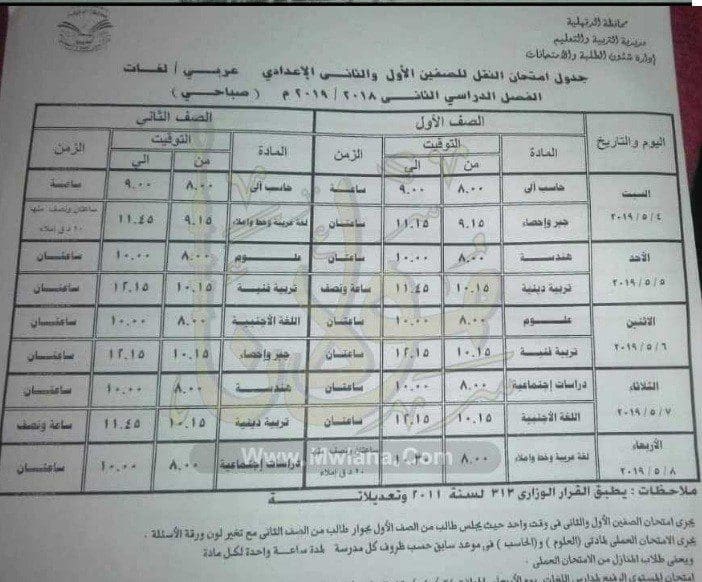 محافظة الدقهلية
مديرية التربية والتعليم
إدارة شئون الطلبة والامتحانات
جدول امتحان النقل للصفين الأول والثانى الإعدادي عربي / لغات
الفصل الدراسي الثانى ٢٠١٨ / ٢٠١٩ م ( صباحي )
اليوم والتاريخ الصف الأول الصف الثانى
المادة التوقيت الزمن المادة التوقيت الزمن
من الى من الى
السبت ٢٠١٩/٥/٤
حاسب آلى ٨.٠٠ ٩.٠٠ ساعة حاسب آلى ٨.٠٠ ٩.٠٠ ساعة
جبر واحصاء ٩.١٥ ١١.١٥ ساعتان لغة عربية وخط واملاء ٩.١٥ ١١.٤٥ ساعتان ونصف منها ٢٠ ق إملاء
الأحد ٢٠١٩/٥/٥
هندسة ٨.٠٠ ١٠.٠٠ ساعتان علوم ٨.٠٠ ١٠.٠٠ ساعتان
تربية دينية ١٠.١٥ ١١.٤٥ ساعة ونصف تربية فنية ١٠.١٥ ١٢.١٥ ساعتان
الاثنين ٢٠١٩/٥/٦
علوم ٨.٠٠ ١٠.٠٠ ساعتان اللغة الأجنبية ٨.٠٠ ١٠.٠٠ ساعتان
تربية فنية ١٠.١٥ ١٢.١٥ ساعتان جبر واحصاء ١٠.١٥ ١٢.١٥ ساعتان
الثلاثاء ٢٠١٩/٥/٧
دراسات إجتماعية ٨.٠٠ ١٠.٠٠ ساعتان هندسة ٨.٠٠ ١٠.٠٠ ساعتان
اللغة الأجنبية ١٠.١٥ ١٢.١٥ ساعتان تربية دينية ١٠.١٥ ١١.٤٥ ساعة ونصف
الأربعاء ٢٠١٩/٥/٨
لغة عربية وخط واملاء ٨.٠٠ ساعتان ونصف ٢٠ ق إملاء دراسات إجتماعية ٨.٠٠ ١٠.٠٠ ساعتان
Www.Mwlana.Com
ملاحظات : يطبق القرار الوزارى ٣١٣ لسنة ٢٠١١ وتعديلاتة
يجرى امتحان الصفين الأول والثانى فى وقت واحد حيث يجلس طالب من الصف الأول بجوار طالب من الصف الثانى مع تغير لون ورقة الأسئلة .
يجرى الامتحان العملى لمادتى (العلوم) و(الحاسب) فى موعد سابق حسب ظروف كل مدرسة لمدة ساعة واحدة لكل مادة
ويعفى طلاب المنازل من الامتحان العملى .